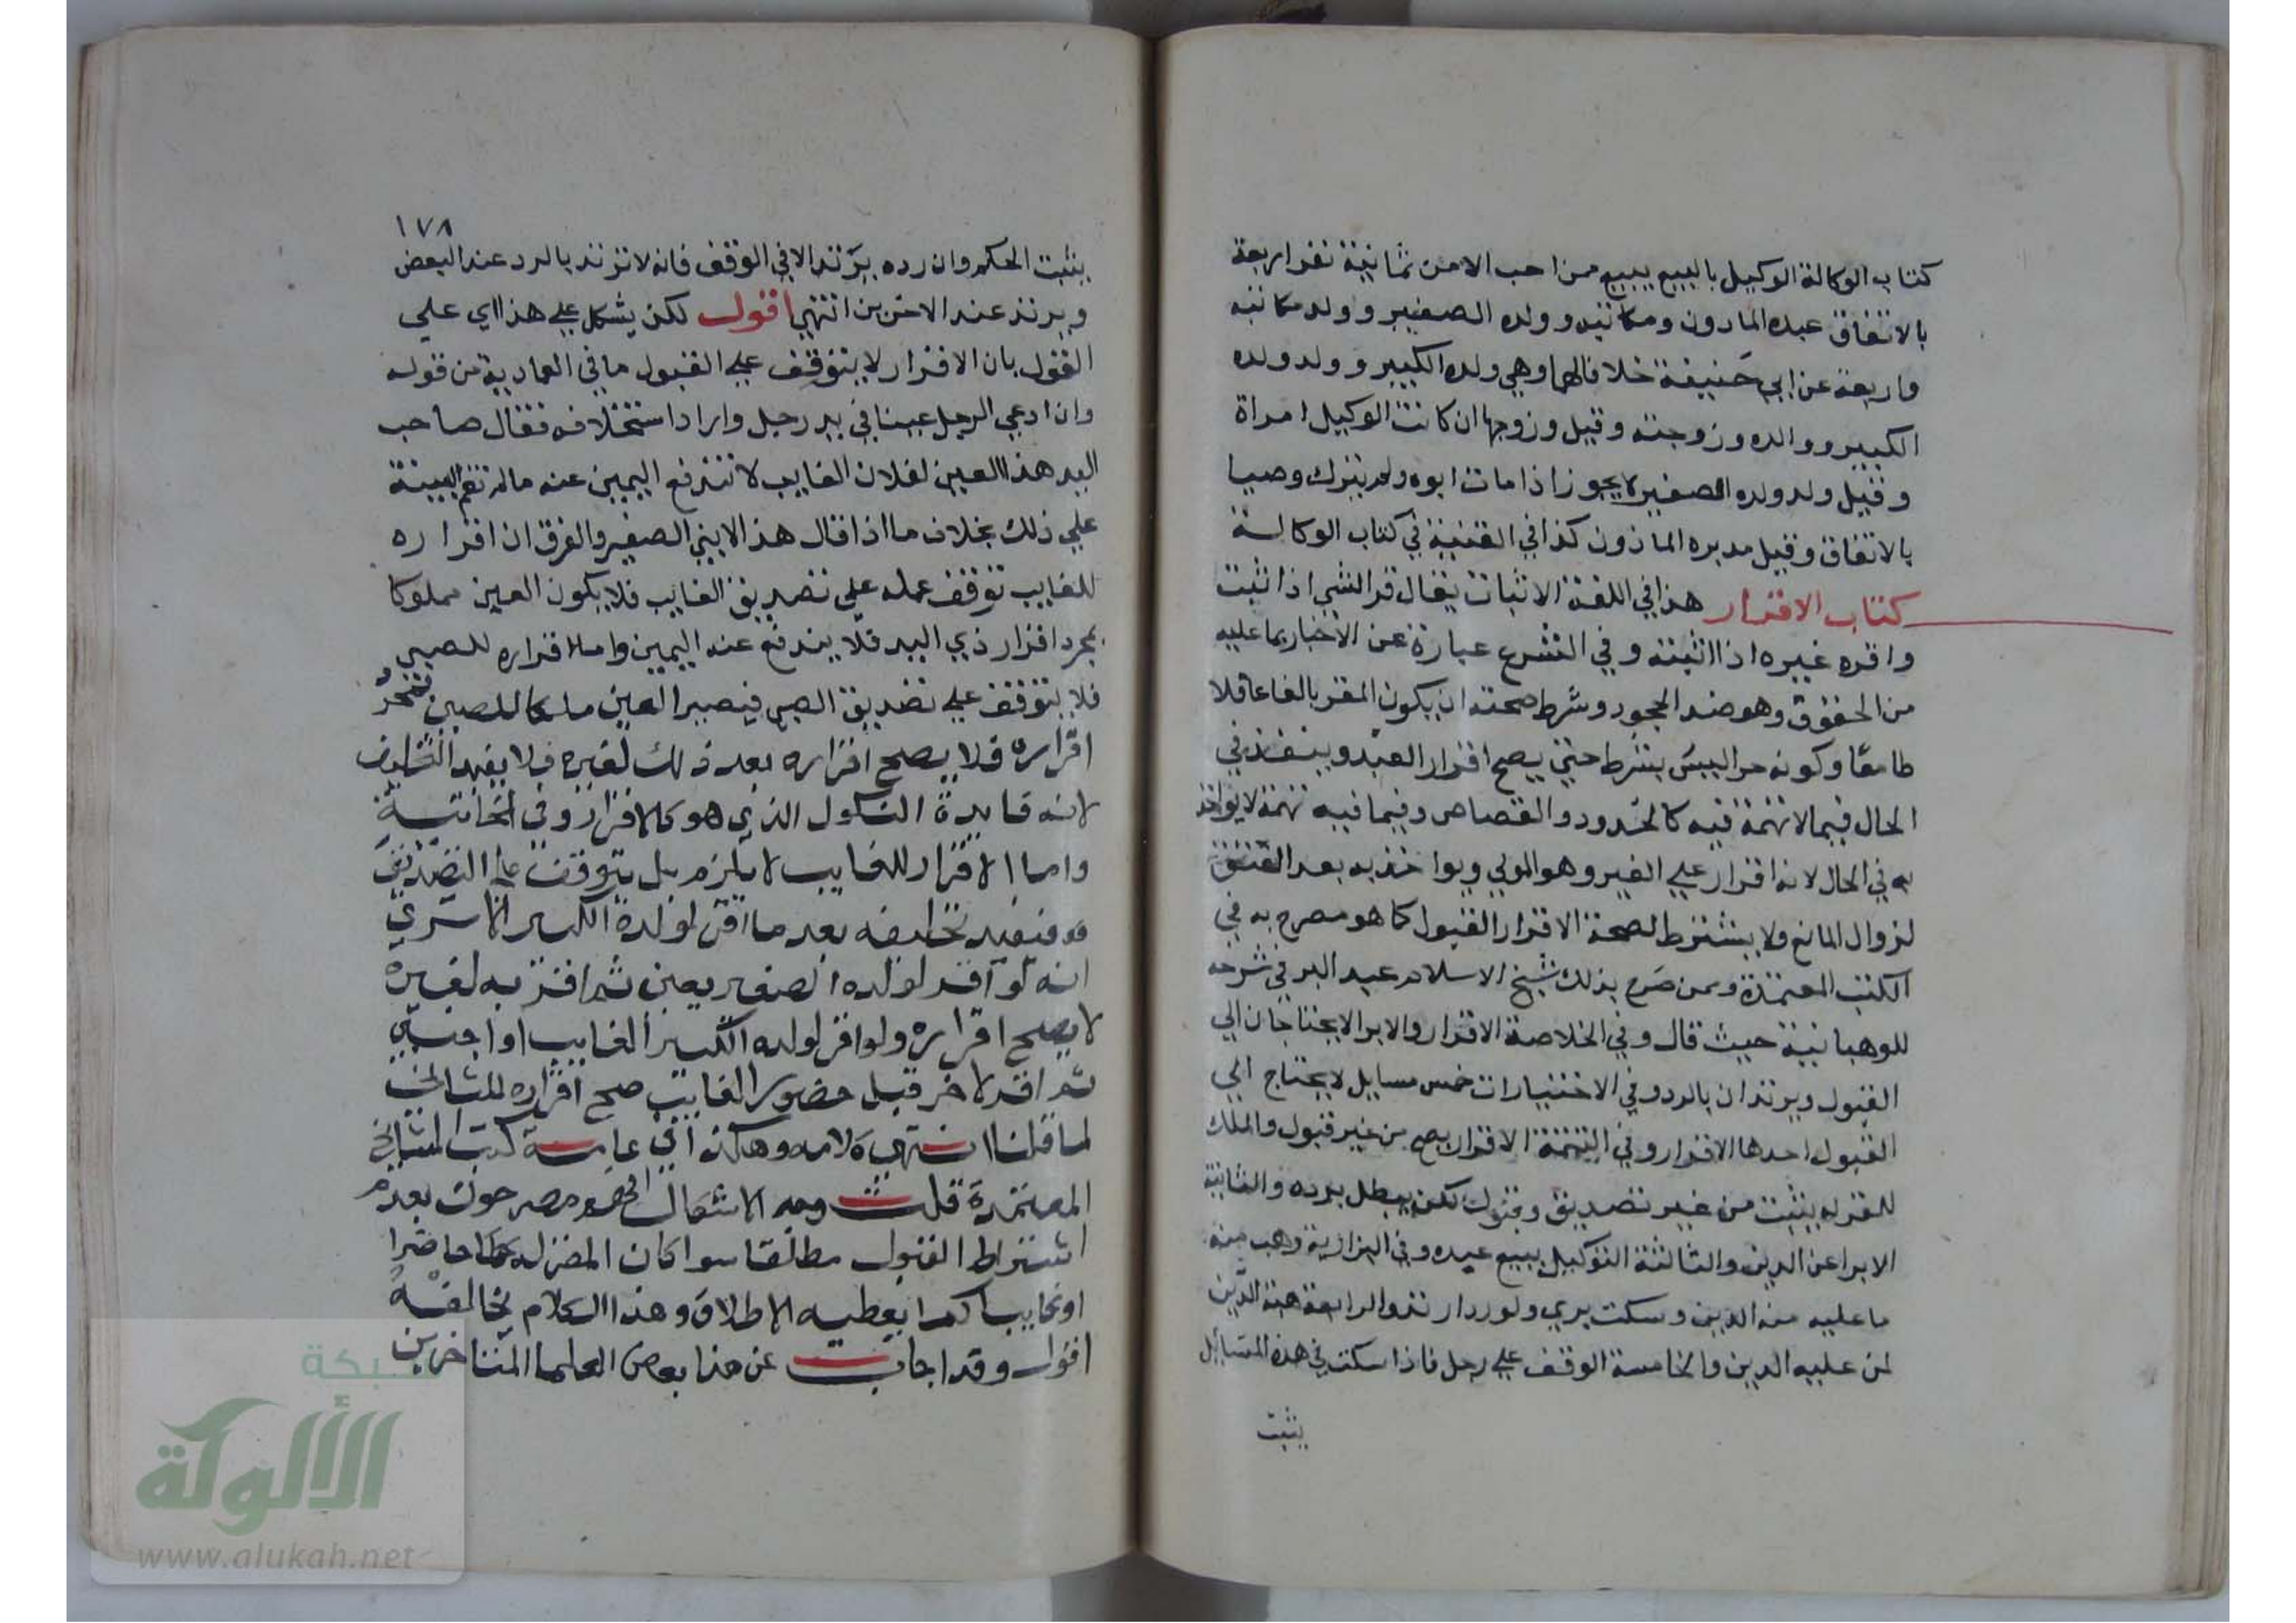 كتاب الوكالة الوكيل بالبيع يبيع من احب الا من ثمانية نفر اربعة
بالاتفاق عبده المادون ومكاتبه وولده الصغير وولد مكاتبه
واربعة عن ابي حنيفة خلافا لهما وهي ولده الكبير وولد ولده
الكبير ووالده وزوجته وقيل وزوجها ان كانت الوكيل امراة
وقيل ولد ولده الصغير لا يجوز اذا مات ابوه ولم يترك وصيا
بالاتفاق وقيل مدبره الماذون كذا في القنية في كتاب الوكالة
كتاب الاقرار هذا في اللغة الاثبات يقال قر الشي اذا ثبت
واقره غيره اذا اثبته وفي الشرع عبارة عن الاخبار بما عليه
من الحقوق وهو ضد الجحود وشرط صحته ان يكون المقر بالغا عاقلا
طامعًا وكونه حرا ليس بشرط حتي يصح اقرار العبد وينفذ في
الحال فيما لا تهمة فيه كالحدود والقصاص وفيما فيه تهمة لا يواخذ
به في الحال لانه اقرار علي الغير وهو المولي ويواخذ به بعد العتق
لزوال المانع ولا يشترط لصحة الاقرار القبول كما هو مصرح به في
الكتب المعتمدة وممن صرح بذلك شيخ الاسلام عبد البر في شرحه
للوهبانية حيث قال وفي الخلاصة الاقرار والابرا لا يحتاجان الي
القبول ويرتدان بالرد وفي الاختيارات خمس مسايل لا يحتاج الي
القبول احدها الاقرار وفي التتمة الاقرار يصح من غير قبول والملك
للمقر له يثبت من غير تصديق وقبول لكن يبطل برده والثانية
الابرا عن الدين والثالثة التوكيل ببيع عبده وفي البزازية وهب منه
ما عليه من الدين وسكت بري ولو رد ارتد والرابعة هبة الدين
لمن عليه الدين والخامسة الوقف علي رجل فاذا سكت في هذه المسائل
يثبت
١٧٨
يثبت الحكم وان رده يرتد الا في الوقف فانه لا ترتد بالرد عند البعض
ويرتد عند الاخرين انتهي اقول لكن يشكل علي هذا اي علي
القول بان الاقرار لا يتوقف علي القبول ما في العمادية من قوله
وان ادعي الرجل عينا في يد رجل واراد استحلافه فقال صاحب
اليد هذا العين لفلان الغايب لا تندفع اليمين عنه ما لم تقم البينة
علي ذلك بخلاف ما اذا قال هذا لابني الصغير والفرق ان اقراره
للغايب توقف عمله علي تصديق الغايب فلا يكون العين مملوكا
بمجرد اقرار ذي اليد فلا يندفع عنه اليمين واما اقراره للصبي
فلا يتوقف علي تصديق الصبي فيصير العين ملكا للصبي بمجرد
اقراره فلا يصح اقراره بعد ذلك لغيره فلا يفيد التحليف
لانه فايدة النكول الذي هو كالاقرار وفي الخانية
واما الاقرار للغايب لا يلزم بل يتوقف علي التصديق
فيفيد تحليفه بعد ما اقر لولده الكبير الا تري
انه لو اقر لولده الصغير بعين ثم اقر به لغيره
لا يصح اقراره ولو اقر لولده الكبير الغايب او اجنبي
ثم اقر لاخر قبل حضور الغايب صح اقراره للثاني
لما قلنا انتهي كلامه وهكذا في عامة كتب المشايخ
المعتمدة قلت وجه الاشكال انهم مصرحون بعدم
اشتراط القبول مطلقا سوا كان المقر له حاضرا
او غايبا كما يعطيه الاطلاق وهذا الكلام يخالفه
اقول وقد اجاب عن هذا بعض العلما المتاخرين
شبكة
الألوكة
www.alukah.net